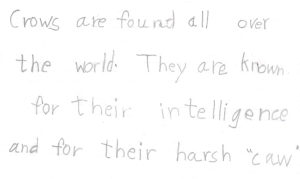 Crows are found all over
the world. They are known
for their intelligence
and for their harsh "caw"